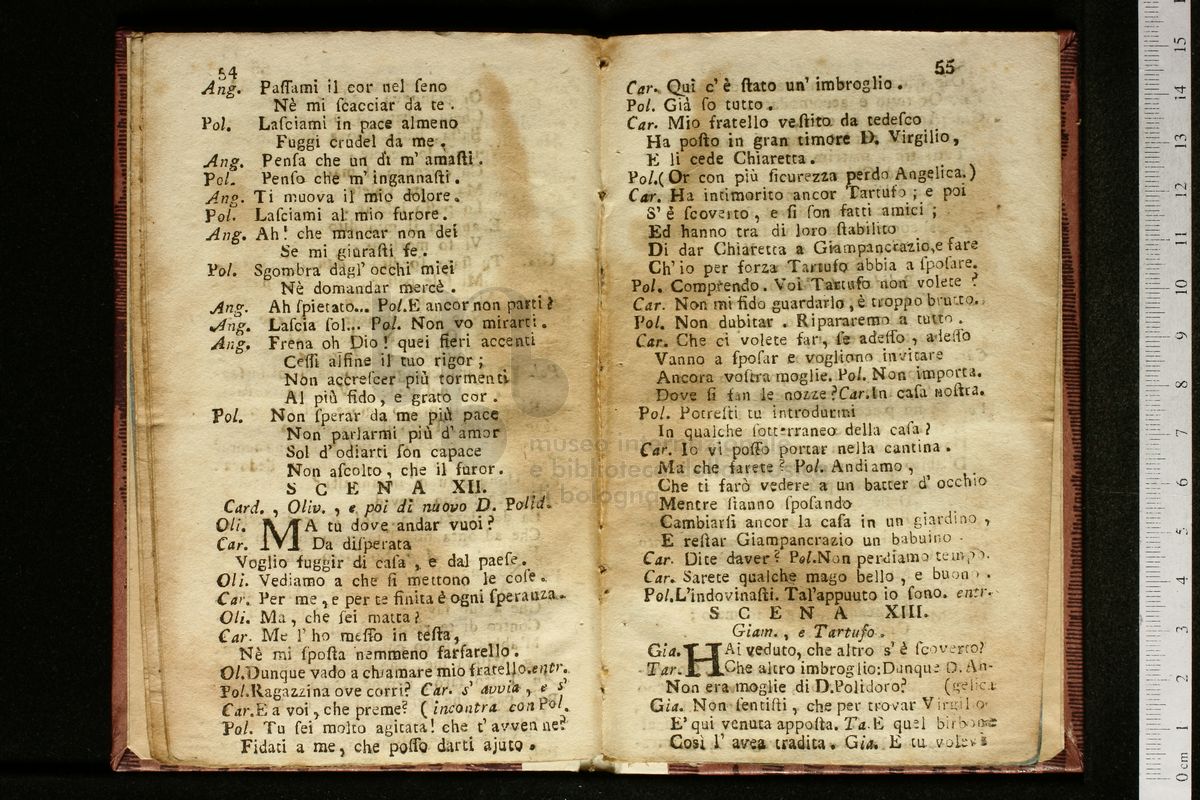 54
Ang. Paſſami il cor nel ſeno
Nè mi ſcacciar da te.
Pol. Laſciami in pace almeno
Fuggi crudel da me.
Ang. Penſa che un dì m' amaſti.
Pol. Penſo che m' ingannaſti.
Ang. Ti muova il mio dolore.
Pol. Laſciami al mio furore.
Ang. Ah! che mancar non dei
Se mi giuraſti fe.
Pol. Sgombra dagl' occhi miei
Nè domandar mercè.
Ang. Ah ſpietato... Pol. E ancor non parti?
Ang. Laſcia ſol... Pol. Non vo mirarti.
Ang. Frena oh Dio! quei fieri accenti
Ceſſi alfine il tuo rigor;
Non accreſcer più tormenti
Al più fido, e grato cor.
Pol. Non ſperar da me più pace
Non parlarmi più d' amor
Sol d' odiarti ſon capace
Non aſcolto, che il furor.
SCENA XII.
Card., Oliv., e poi di nuovo D. Polid.
Oli. MA tu dove andar vuoi?
Car. Da diſperata
Voglio fuggir di caſa, e dal paeſe.
Oli. Vediamo a che ſi mettono le coſe.
Car. Per me, e per te finita è ogni ſperanza.
Oli. Ma, che ſei matta?
Car. Me l' ho meſſo in teſta,
Nè mi ſpoſta nemmeno farfarello.
Ol. Dunque vado a chiamare mio fratello. entr.
Pol. Ragazzina ove corri? Car. s' avvia, e s'
Car. E a voi, che preme? (incontra con Pol.
Pol. Tu ſei molto agitata! che t' avvenne?
Fidati a me, che poſſo darti ajuto.
55
Car. Quì c' è ſtato un' imbroglio.
Pol. Già ſo tutto.
Car. Mio fratello veſtito da tedeſco
Ha poſto in gran timore D. Virgilio,
E li cede Chiaretta.
Pol. (Or con più ſicurezza perdo Angelica.)
Car. Ha intimorito ancor Tartufo; e poi
S' è ſcoverto, e ſi ſon fatti amici;
Ed hanno tra di loro ſtabilito
Di dar Chiaretta a Giampancrazio, e fare
Ch' io per forza Tartufo abbia a ſpoſare.
Pol. Comprendo. Voi Tartufo non volete?
Car. Non mi fido guardarlo, è troppo brutto.
Pol. Non dubitar. Ripararemo a tutto.
Car. Che ci volete far, ſe adeſſo, adeſſo
Vanno a ſpoſar e vogliono invitare
Ancora voſtra moglie. Pol. Non importa.
Dove ſi fan le nozze? Car. In caſa noſtra.
Pol. Potreſti tu introdurmi
In qualche ſotterraneo della caſa?
Car. Io vi poſſo portar nella cantina.
Ma che farete? Pol. Andiamo,
Che ti farò vedere a un batter d' occhio
Mentre ſtanno ſpoſando
Cambiarſi ancor la caſa in un giardino,
E reſtar Giampancrazio un babuino.
Car. Dite daver? Pol. Non perdiamo tempo.
Car. Sarete qualche mago bello, e buono.
Pol. L'indovinaſti. Tal'appuuto io ſono. entr.
SCENA XIII.
Giam., e Tartufo.
Gia. HAi veduto, che altro s' è ſcoverto?
Tar. Che altro imbroglio: Dunque D. An-
Non era moglie di D. Polidoro? (gelica
Gia. Non ſentiſti, che per trovar Virgilio
E' qui venuta appoſta. Ta. E quel birbone
Così l' avea tradita. Gia. E tu volevi
museo internazionale
e biblioteca della musica
di bologna
0 cm 1 2 3 4 5 6 7 8 9 10 11 12 13 14 15